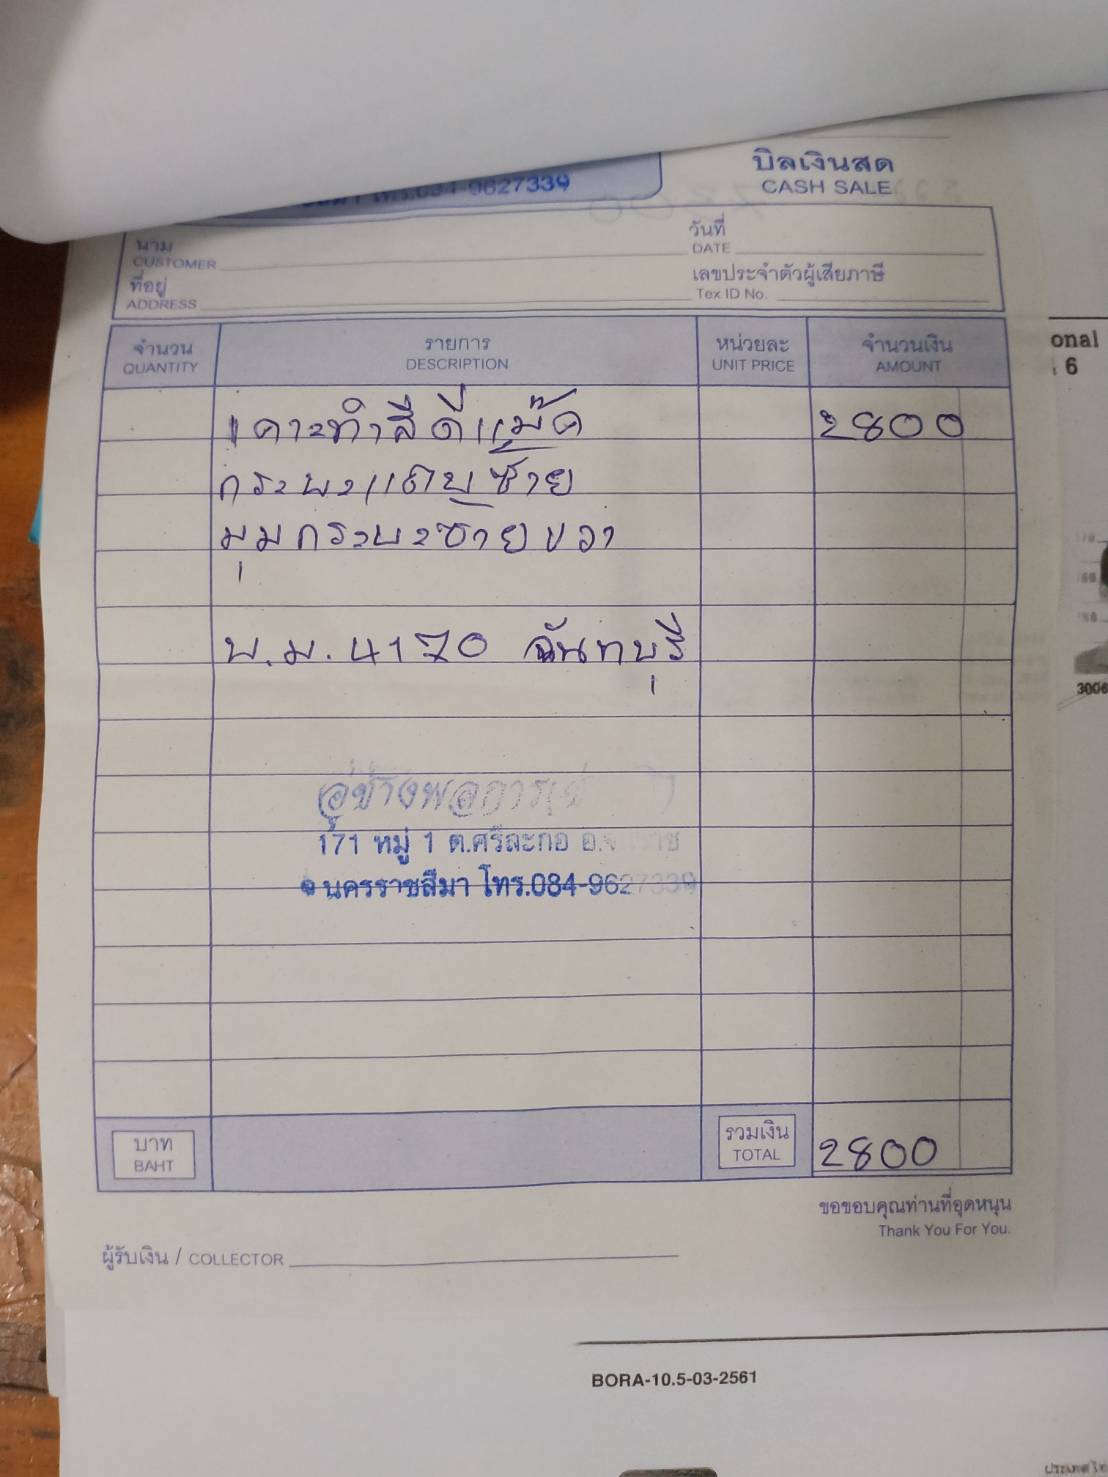 โทร.084-9627339
บิลเงินสด
CASH SALE
นาม
CUSTOMER
วันที่
DATE
ที่อยู่
ADDRESS
เลขประจำตัวผู้เสียภาษี
Tex ID No.
จำนวน
QUANTITY
รายการ
DESCRIPTION
หน่วยละ
UNIT PRICE
จำนวนเงิน
AMOUNT
เคาะทำสีดีแม๊ค 2800
กระบะแคบซ้าย
มุมกระบะซ้ายขวา
บ.ม. 4170 จันทบุรี
อู่ช่างพลการ
171 หมู่ 1 ต.ศรีละกอ อ.
นครราชสีมา โทร.084-9627339
บาท
BAHT
รวมเงิน
TOTAL
2800
ขอขอบคุณท่านที่อุดหนุน
Thank You For You.
ผู้รับเงิน / COLLECTOR
BORA-10.5-03-2561
onal
6
3006